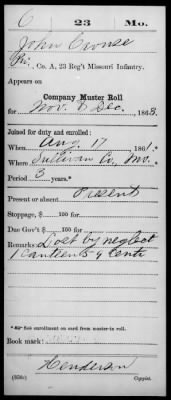 C 23 Mo.
John Crouse
Pri., Co. A, 23 Reg't Missouri Infantry.
Appears on
Company Muster Roll
for Nov. & Dec., 1863.
Joined for duty and enrolled:
When Aug. 17, 1861.
Where Sullivan Co., Mo.
Period 3 years.*
Present or absent Present
Stoppage, $ 100 for
Due Gov't $ 100 for
Remarks: Lost by neglect
1 canteen 59 cents
*See enrollment on card from muster-in roll.
Book mark:
Henderson
(858c) Copyist.